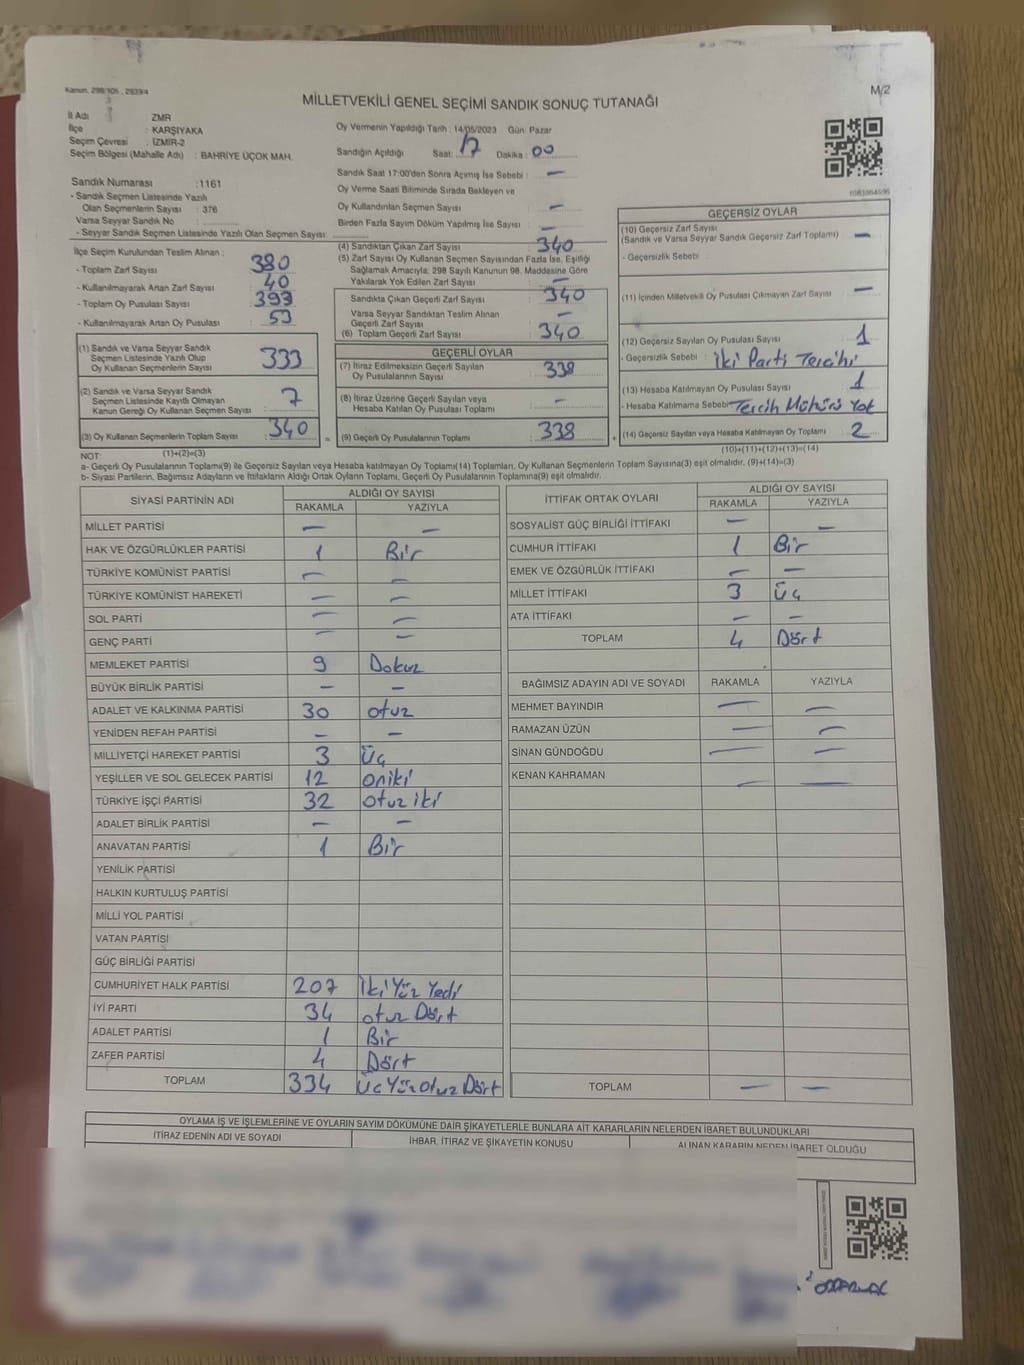 Kanun, 298/105 , 2839/4
M/2
MİLLETVEKİLİ GENEL SEÇİMİ SANDIK SONUÇ TUTANAĞI
İl Adı ZMR
İlçe : KARŞIYAKA
Seçim Çevresi : İZMİR-2
Seçim Bölgesi (Mahalle Adı) : BAHRİYE ÜÇOK MAH.
Oy Vermenin Yapıldığı Tarih : 14/05/2023 Gün: Pazar
Sandığın Açıldığı Saat: 17 Dakika : 00
Sandık Saat 17:00'den Sonra Açımış İse Sebebi : —
Oy Verme Saati Bitiminde Sırada Bekleyen ve
Oy Kullandırılan Seçmen Sayısı —
Birden Fazla Sayım Döküm Yapılmış İse Sayısı : —
Sandık Numarası :1161
- Sandık Seçmen Listesinde Yazılı
Olan Seçmenlerin Sayısı : 376
Varsa Seyyar Sandık No :
- Seyyar Sandık Seçmen Listesinde Yazılı Olan Seçmen Sayısı:
İlçe Seçim Kurulundan Teslim Alınan :
- Toplam Zarf Sayısı 380
- Kullanılmayarak Artan Zarf Sayısı : 40
- Toplam Oy Pusulası Sayısı : 393
- Kullanılmayarak Artan Oy Pusulası : 53
(1) Sandık ve Varsa Seyyar Sandık
Seçmen Listesinde Yazılı Olup
Oy Kullanan Seçmenlerin Sayısı : 333
(2) Sandık ve Varsa Seyyar Sandık
Seçmen Listesinde Kayıtlı Olmayan
Kanun Gereği Oy Kullanan Seçmen Sayısı : 7
(3) Oy Kullanan Seçmenlerin Toplam Sayısı : 340
(4) Sandıktan Çıkan Zarf Sayısı : 340
(5) Zarf Sayısı Oy Kullanan Seçmen Sayısından Fazla İse, Eşitliği
Sağlamak Amacıyla; 298 Sayılı Kanunun 98. Maddesine Göre
Yakılarak Yok Edilen Zarf Sayısı : —
Sandıkta Çıkan Geçerli Zarf Sayısı : 340
Varsa Seyyar Sandıktan Teslim Alınan
Geçerli Zarf Sayısı : —
(6) Toplam Geçerli Zarf Sayısı : 340
GEÇERLİ OYLAR
(7) İtiraz Edilmeksizin Geçerli Sayılan
Oy Pusulalarının Sayısı : 338
(8) İtiraz Üzerine Geçerli Sayılan veya
Hesaba Katılan Oy Pusulası Toplamı : —
= (9) Geçerli Oy Pusulalarının Toplamı : 338 +
GEÇERSİZ OYLAR
(10) Geçersiz Zarf Sayısı
(Sandık ve Varsa Seyyar Sandık Geçersiz Zarf Toplamı) : —
- Geçersizlik Sebebi :
(11) İçinden Milletvekili Oy Pusulası Çıkmayan Zarf Sayısı : —
(12) Geçersiz Sayılan Oy Pusulası Sayısı : 1
- Geçersizlik Sebebi : iki Parti Tercihi
(13) Hesaba Katılmayan Oy Pusulası Sayısı : 1
- Hesaba Katılmama Sebebi : Tercih Mühürü Yok
(14) Geçersiz Sayılan veya Hesaba Katılmayan Oy Toplamı : 2
NOT: (1)+(2)=(3)
(10)+(11)+(12)+(13)=(14)
a- Geçerli Oy Pusulalarının Toplamı(9) ile Geçersiz Sayılan veya Hesaba katılmayan Oy Toplamı(14) Toplamları, Oy Kullanan Seçmenlerin Toplam Sayısına(3) eşit olmalıdır. (9)+(14)=(3)
b- Siyasi Partilerin, Bağımsız Adayların ve İttifakların Aldığı Ortak Oyların Toplamı, Geçerli Oy Pusulalarının Toplamına(9) eşit olmalıdır.
SİYASİ PARTİNİN ADI
ALDIĞI OY SAYISI
RAKAMLA YAZIYLA
MİLLET PARTİSİ — —
HAK VE ÖZGÜRLÜKLER PARTİSİ 1 Bir
TÜRKİYE KOMÜNİST PARTİSİ — —
TÜRKİYE KOMÜNİST HAREKETİ — —
SOL PARTİ — —
GENÇ PARTİ — —
MEMLEKET PARTİSİ 9 Dokuz
BÜYÜK BİRLİK PARTİSİ — —
ADALET VE KALKINMA PARTİSİ 30 otuz
YENİDEN REFAH PARTİSİ — —
MİLLİYETÇİ HAREKET PARTİSİ 3 Üç
YEŞİLLER VE SOL GELECEK PARTİSİ 12 oniki
TÜRKİYE İŞÇİ PARTİSİ 32 otuz iki
ADALET BİRLİK PARTİSİ — —
ANAVATAN PARTİSİ 1 Bir
YENİLİK PARTİSİ
HALKIN KURTULUŞ PARTİSİ
MİLLİ YOL PARTİSİ
VATAN PARTİSİ
GÜÇ BİRLİĞİ PARTİSİ
CUMHURİYET HALK PARTİSİ 207 İki Yüz Yedi
İYİ PARTİ 34 otuz Dört
ADALET PARTİSİ 1 Bir
ZAFER PARTİSİ 4 Dört
TOPLAM 334 Üç Yüz Otuz Dört
İTTİFAK ORTAK OYLARI
ALDIĞI OY SAYISI
RAKAMLA YAZIYLA
SOSYALİST GÜÇ BİRLİĞİ İTTİFAKI — —
CUMHUR İTTİFAKI 1 Bir
EMEK VE ÖZGÜRLÜK İTTİFAKI — —
MİLLET İTTİFAKI 3 Üç
ATA İTTİFAKI — —
TOPLAM 4 Dört
BAĞIMSIZ ADAYIN ADI VE SOYADI RAKAMLA YAZIYLA
MEHMET BAYINDIR — —
RAMAZAN ÜZÜN — —
SİNAN GÜNDOĞDU — —
KENAN KAHRAMAN — —
TOPLAM — —
OYLAMA İŞ VE İŞLEMLERİNE VE OYLARIN SAYIM DÖKÜMÜNE DAİR ŞİKAYETLERLE BUNLARA AİT KARARLARIN NELERDEN İBARET BULUNDUKLARI
İTİRAZ EDENİN ADI VE SOYADI
İHBAR, İTİRAZ VE ŞİKAYETİN KONUSU
ALINAN KARARIN NEDEN İBARET OLDUĞU